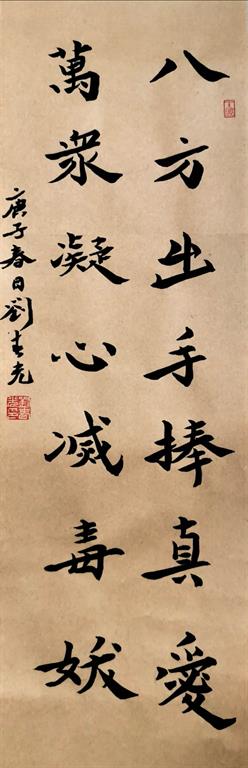 八方出手捧真愛
萬衆凝心滅毒妖
庚子春日劉春光